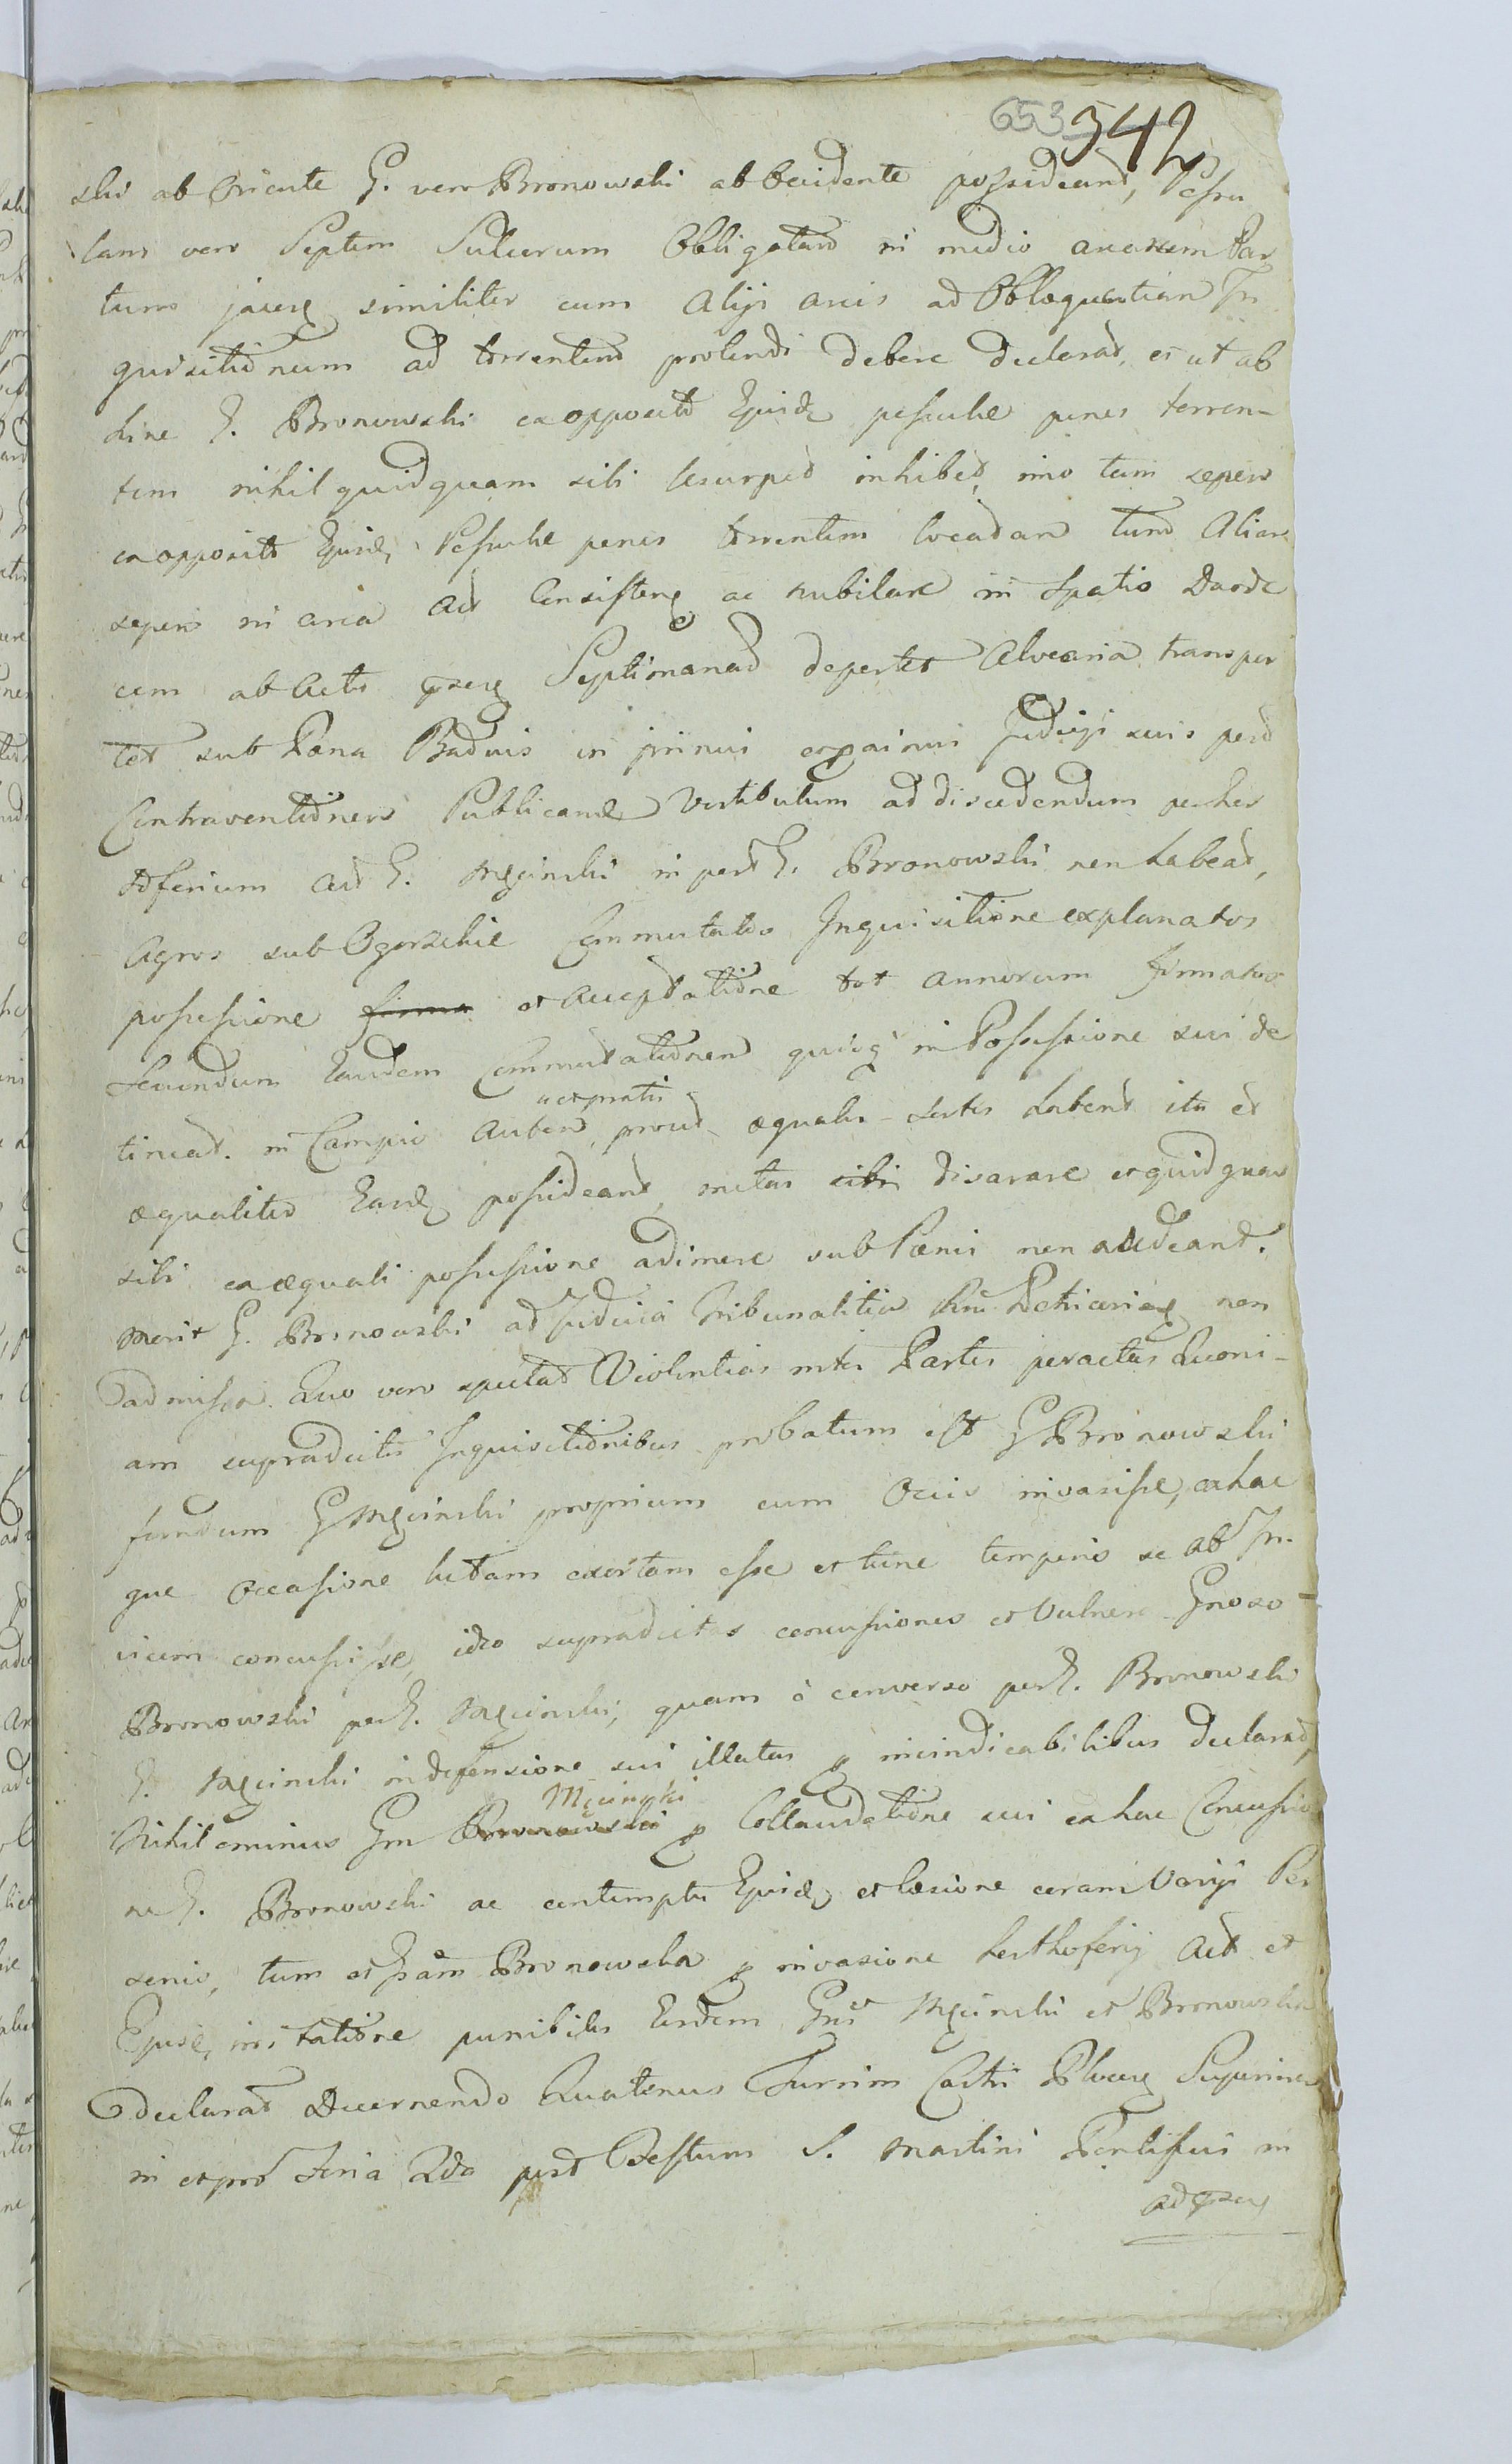 653 542
ski ab Oriente G. vero Bronowski ab Occidente possideant, Pescu
lam vero Septem Sulcorum Obligatam in medio arearum Par
tium jacere similiter cum Alijs areis ad Obloquentiam In
quisitionum ad torrentem protendi debere declarat, et ut ab
hinc G. Bronowski ex opposito Ejusd pesculae penes torren-
tem nihil quidquam sibi Usurpet inhibet, imo tum sepem
ex opposito Ejusd Pesculae penes torrentem locatam tum Aliam
sepem in area Act Consistens ac nubilare in Spatio Duode
cim ab Actu pnti Septimanas deportet Alvearia transpor
tet sub Pæna Bannis in primis Judicijs suis post
Contraventionem Publicand Vestibulum ad discedendum per hor
tiferium Act G. Męcinski in part G. Bronowski non habeat,
Agros sub Ogorzelie Commutatos Inquisitione explanatos
possessione firma et acceptatione tot annorum firmatos
secundum Eandem Commutationem quisq in Possessione sui de
tineat. in Campis autem, prout æquales sortes habent ita et
ac pratis
æqualiter Easd possideant, metas sibi disarare et quidquam
sibi ex æquali possessione adimere sub Pænis non audeant.
Mon G. Bronowski ad Judicia Tribunalitia non
admissa. Quo vero spectat Violentias inter Partes peractas Quoni-
am supradictis Inquisitionibus probatum est G Bronowski
fundum G Męcinski proprium cum Ocijs invasisse, ex hac
que Occasione luctam exortam esse et tunc temporis se ab In-
vicem concussisse, ideo supradictas concussiones et Vulnera Gnoso
Bronowski per G. Męcinski, quam è converso per G. Bronowski
G. Męcinski in defensione sui illatas p invindicabilibus declarat,
Nihil ominus Gm Bronowski p Collaudatione sui ex hac Concussio
Męcinski
ne G. Bronowski ac contemptu Ejusd et læsione coram Varijs Per
sonis, tum et Gsam Bronowska p invasione horthoferij Act et
Ejusd irritatione punibiles Eosdem Gnos Męcinski et Bronowska
declarat Decernendo Quatenus Turrim Castri Superiorem
in et pro Feria 2da post Festum S. Martini Pontificis in
ad pnsens